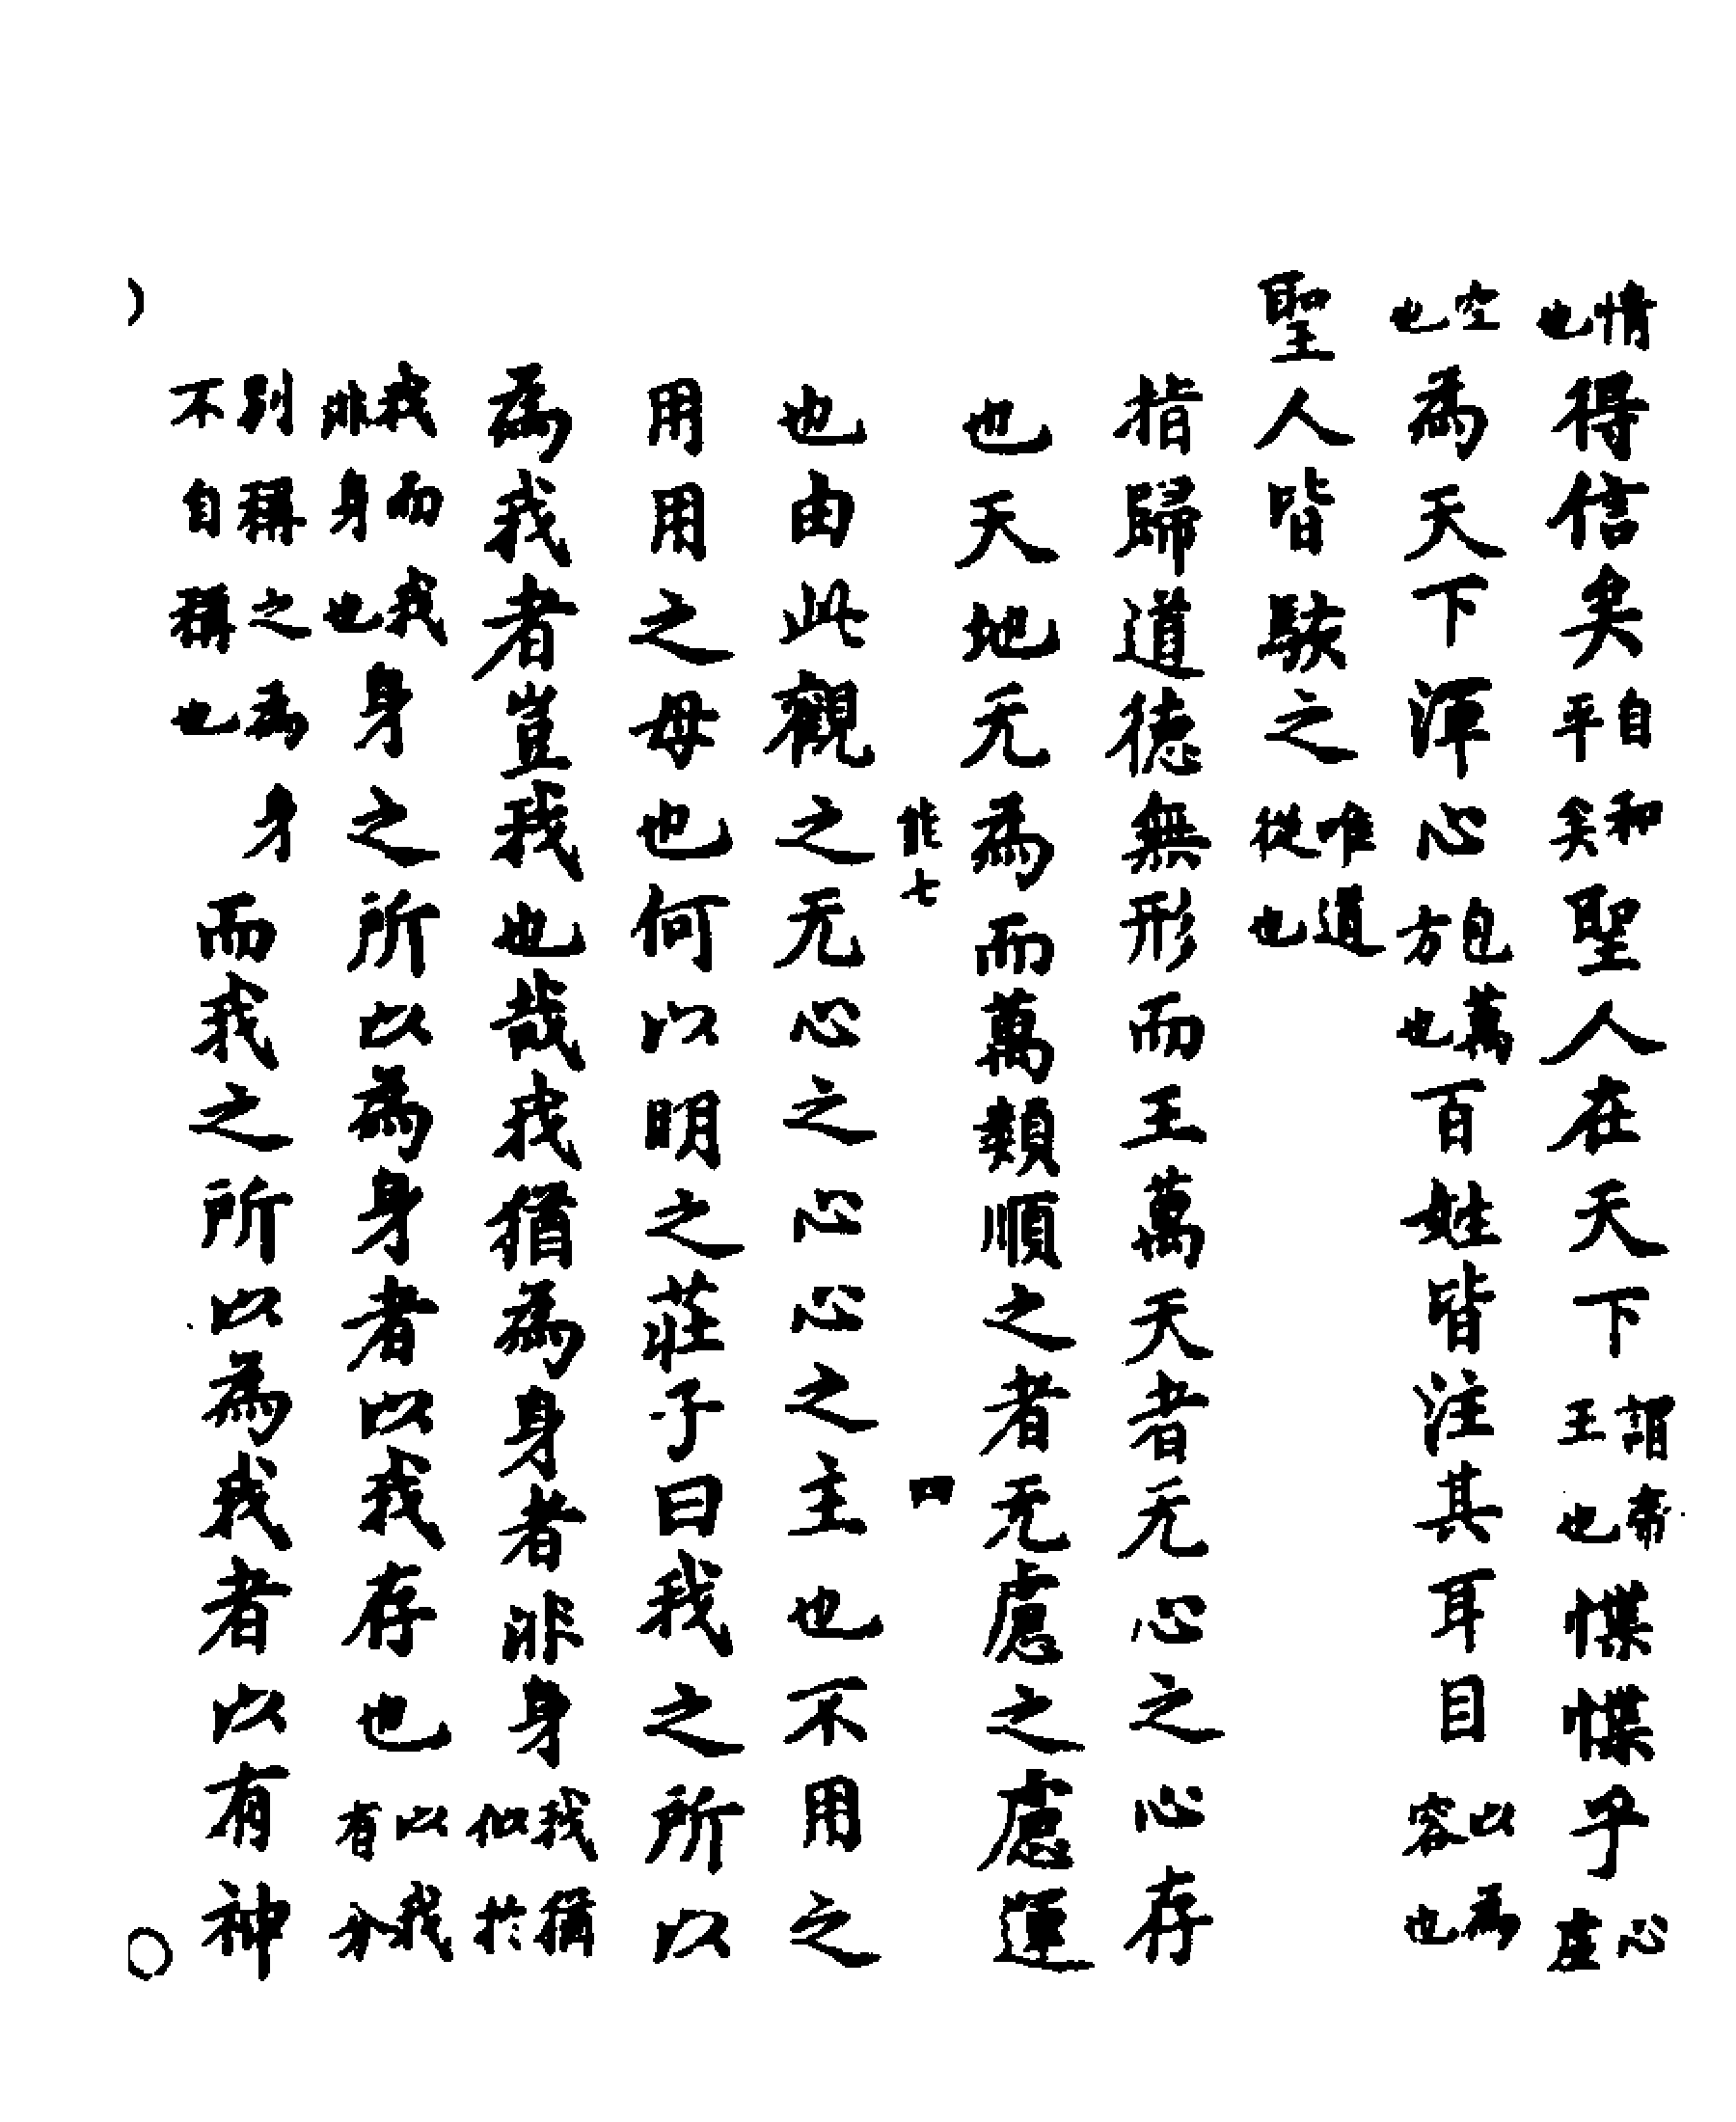 情也得信矣自和平矣聖人在天下謂帝王也惵惵乎心虛
空也為天下渾心包萬方也百姓皆注其耳目以為容也
聖人皆駭之唯道從也
指歸道德無形而王萬天者无心之心存
也天地无為而萬類順之者无慮之慮運
能七 四
也由此觀之无心之心心之主也不用之
用用之母也何以明之莊子曰我之所以
為我者豈我也哉我猶為身者非身我猶似於
我而我非身也身之所以為身者以我存也以我有分
別稱之為不自稱也身而我之所以為我者以有神